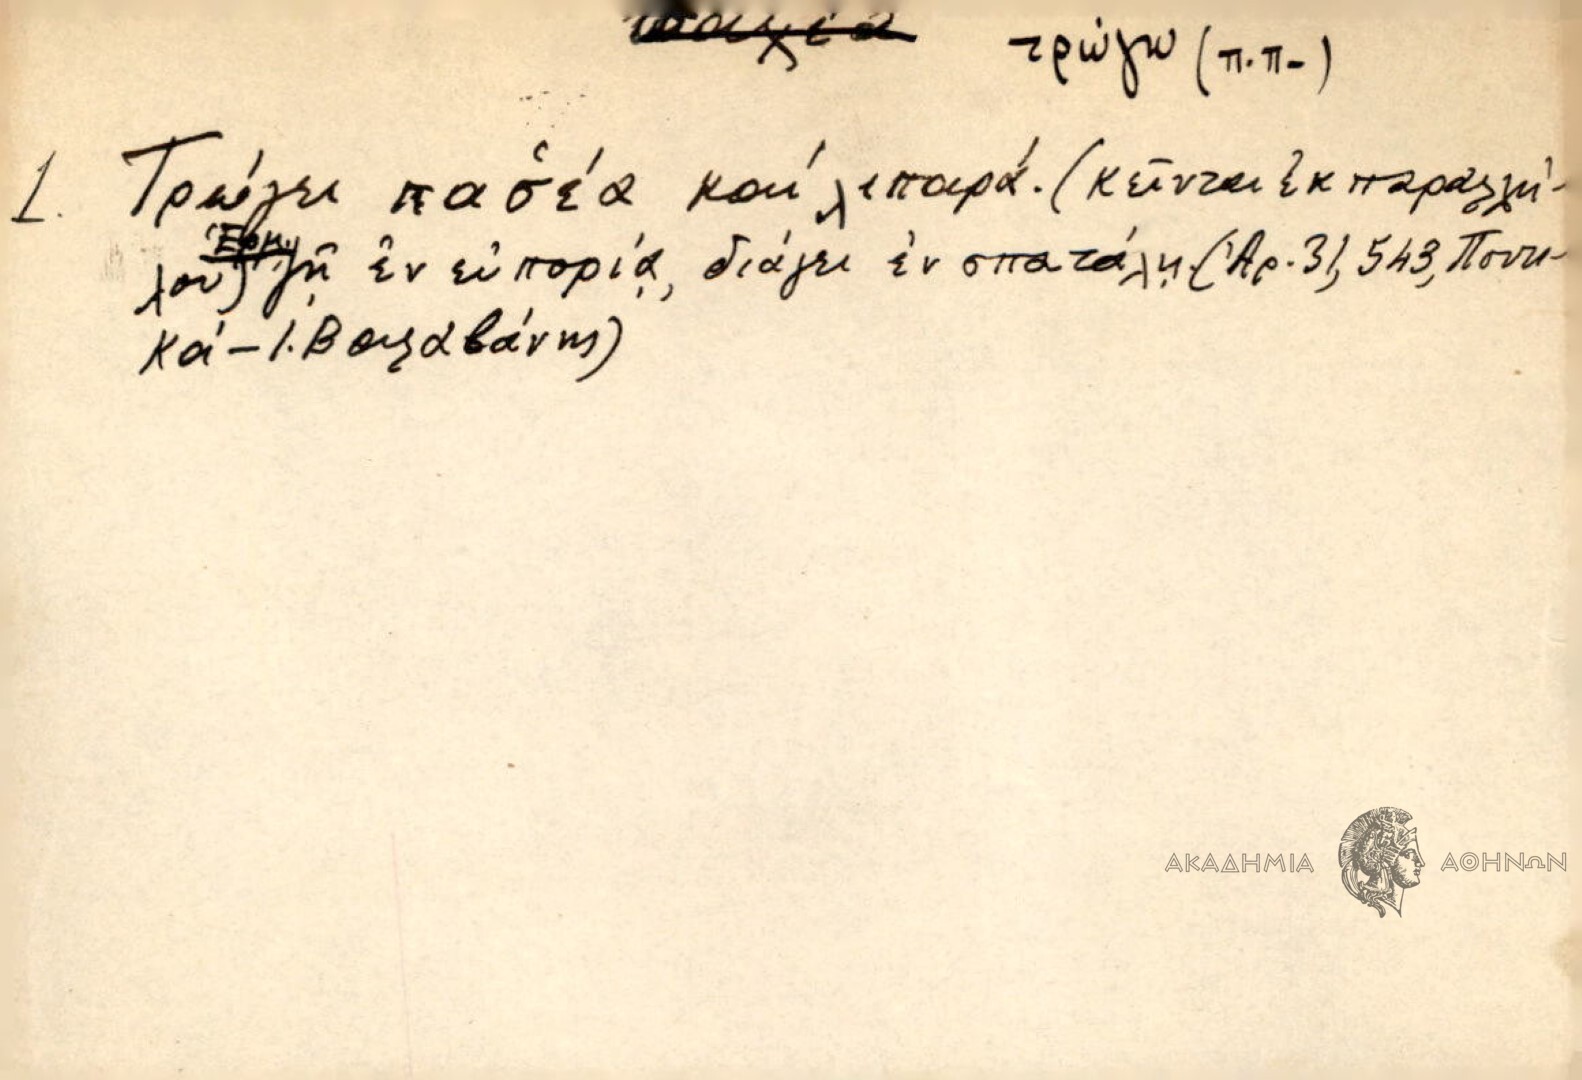 παχέα
τρώγω (π.π-)
1. Τρώγει πασ̌έα καί λιπαρά. (κεῖνται ἐκ παραλλή-
λου) Ἑρμ. ζῇ ἐν εὐπορίᾳ, διάγει ἐν σπατάλῃ. (Ἀρ. 31, 543, Ποντι-
κά - Ι. Βαλαβάνης)
ΑΚΑΔΗΜΙΑ ΑΘΗΝΩΝ